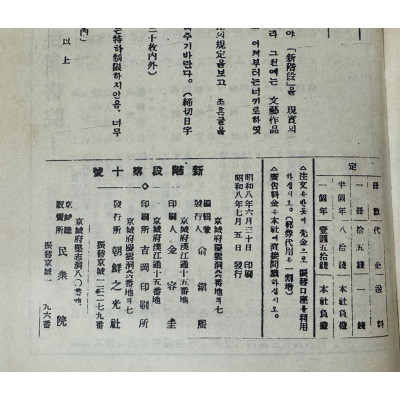 야 「新階段」을 現實의
라 그뒌에는 文藝作品
이저부터는너키로하엿
의 規定을보고 조흔글을
주기바란다。 (締切日字
二十枚內外)
는特하制限하지안음、너무
以上
定
冊數 代金 送料
一冊 十五錢 一錢
半個年 八拾錢 本社負擔
一個年 壹圓五拾錢 本社負擔
△注文은반듯이先金으로振替口座를利用
하십시오。(郵券代用은一割增)
△廣告料金은本社에直接問議하십시오。
昭和八年六月三十日 印刷
昭和八年七月五日 發行
新階段第十號
京城府慶雲洞六番地의七
編輯兼
發行人 兪鎭熙
京城府漢江通十五番地
印刷人 金容圭
京城府漢江通十五番地
印刷所 吉岡印刷所
京城府慶雲洞六番地의七
發行所 朝鮮之光社
振替京城一二二七九番
京城府堅志洞八〇番地
京城總
販賣所 民衆院
振替京城一 九六番